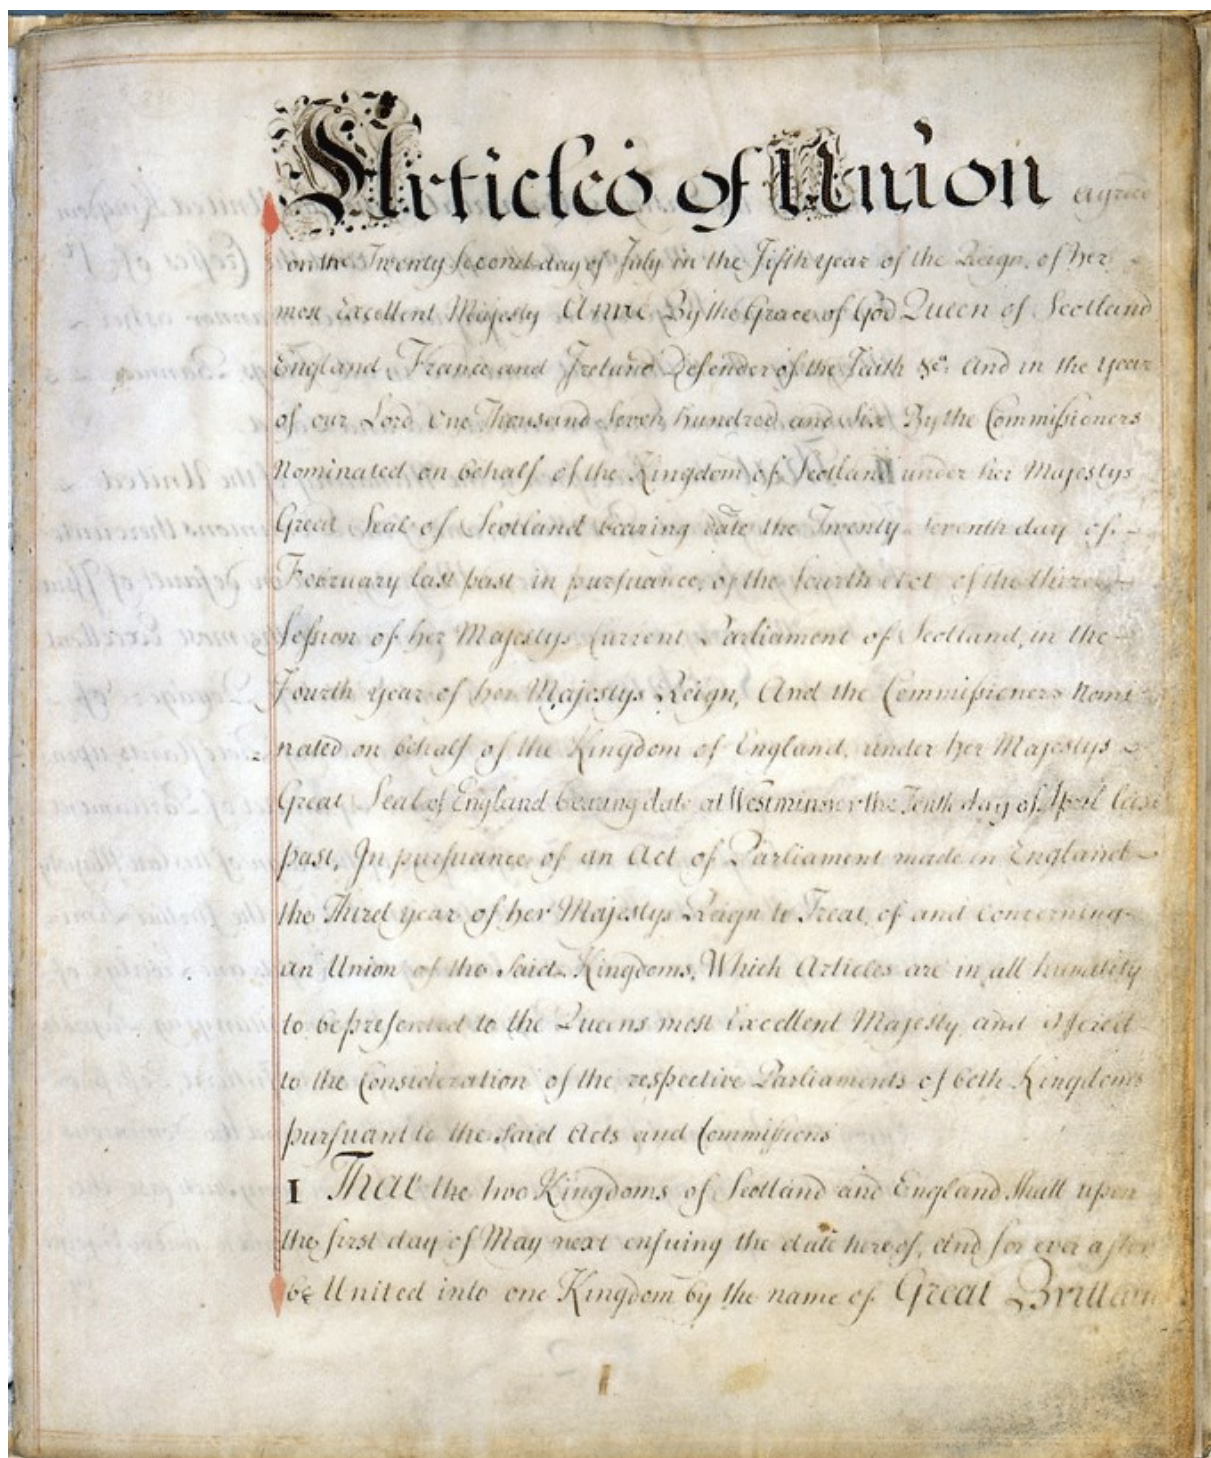 Articles of Union agreed
on the Twenty Second day of July in the Fifth year of the Reign of her
most Excellent Majesty Anne By the Grace of God Queen of Scotland
England France and Ireland Defender of the Faith &c. And in the year
of our Lord One Thousand Seven hundred and Six By the Commissioners
Nominated on behalf of the Kingdom of Scotland under her Majestys
Great Seal of Scotland bearing date the Twenty Seventh day of
February last past in pursuance of the fourth Act of the third
Session of her Majestys Current Parliament of Scotland, in the
Fourth year of her Majestys Reign, And the Commissioners Nomi
nated on behalf of the Kingdom of England, under her Majestys
Great Seal of England bearing date at Westminster the Tenth day of April last
past, In pursuance of an Act of Parliament made in England
the Third year of her Majestys Reign to Treat of and concerning
an Union of the said Kingdoms, Which Articles are in all humility
to be presented to the Queens most Excellent Majesty and offered
to the Consideration of the respective Parliaments of both Kingdoms
pursuant to the said Acts and Commissions
I That the two Kingdoms of Scotland and England Shall upon
the first day of May next ensuing the date hereof, and for ever after
be United into one Kingdom by the name of Great Brittain